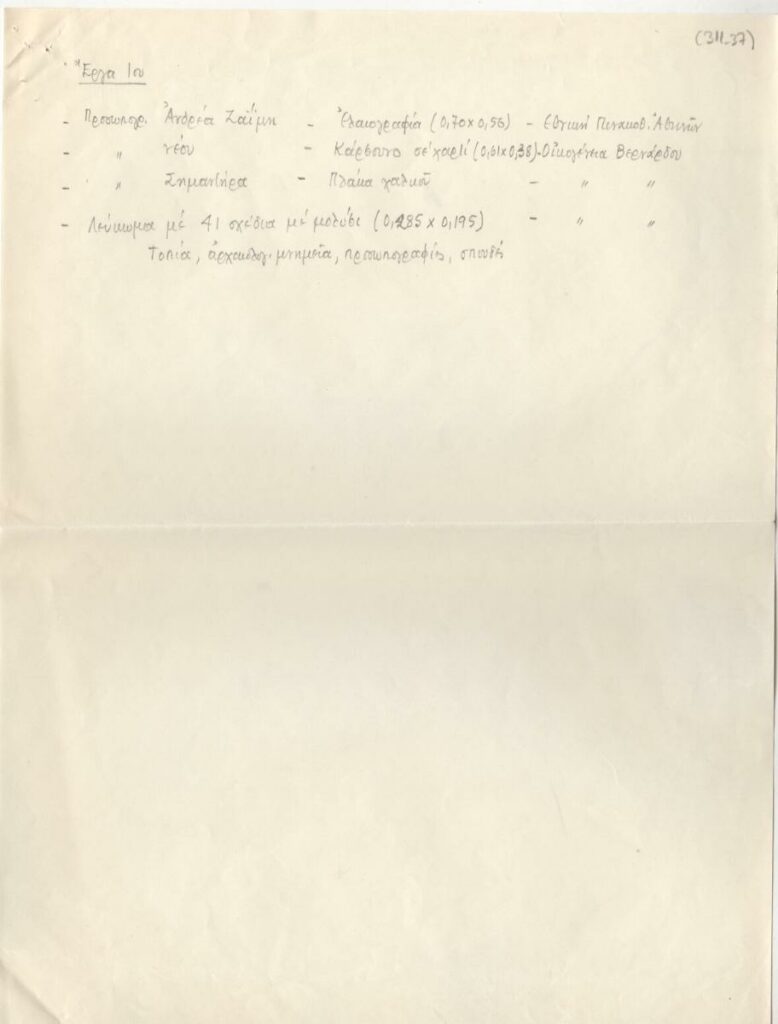 (311-37)
Ἔργα 1ου
- Προσωπογρ. Ἀνδρέα Ζαΐμη - Ἐλαιογραφία (0,70 x 0,56) - Ἐθνική Πινακοθ. Ἀθηνῶν
- " νέου - Κάρβουνο σέ χαρτί (0,61 x 0,38) - Οἰκογένεια Βερνάρδου
- " Σημαντήρα - Πλάκα χαλκοῦ - " "
- Λεύκωμα μέ 41 σχέδια μέ μολύβι (0,285 x 0,195) - " "
Τοπία, ἀρχαιολογ. μνημεῖα, προσωπογραφίες, σπουδές